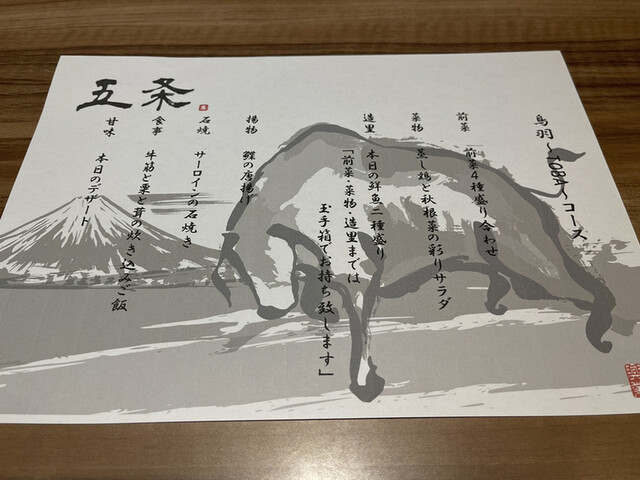 鳥羽〜TOBA〜コース
前菜
前菜4種盛り合わせ
菜物
蒸し鶏と秋根菜の彩りサラダ
造里
本日の鮮魚二種盛り
「前菜・菜物・造里までは
玉手箱でお持ち致します」
揚物
鰈の唐揚げ
石焼
サーロインの石焼き
食事
牛筋と栗と茸の炊き込みご飯
甘味
本日のデザート
五条